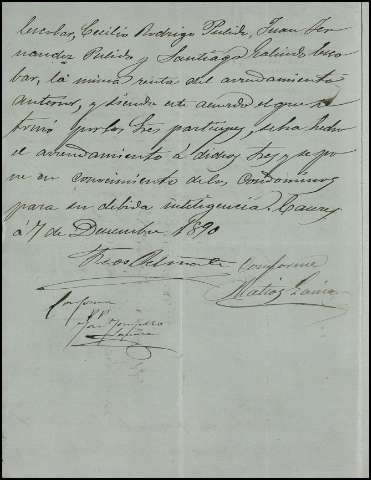 Escobar, Cecilio Rodrigo Pulido, Juan Fer-
nandez Pulido y Santiago Galindo Esco-
bar, la misma renta del arrendamiento
anterior, y siendo este acuerdo el que se
tomó por los tres participes, se ha hecho
el arrendamiento á dichos tres y se po-
ne en conocimiento de los Condominos
para su debida inteligencia. Cauro
á 7 de Diciembre 1890
Conforme
Matias
Conforme
P.P.
José